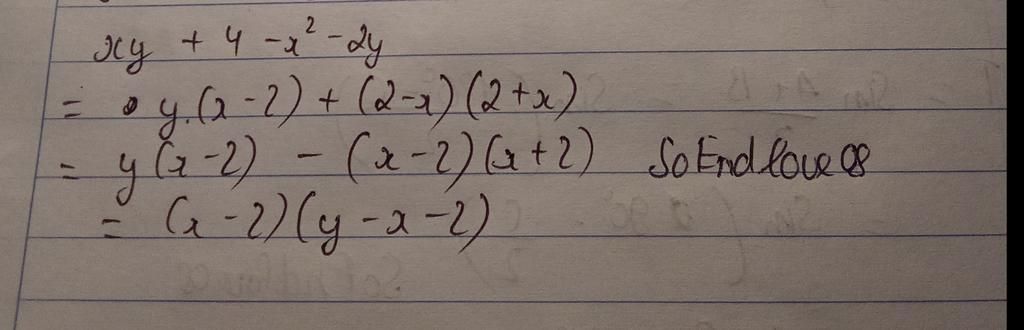 xy + 4 - x² - 2y
= y.(x-2) + (2-x)(2+x)
= y(x-2) - (x-2)(x+2) SoEndloveos
= (x-2)(y-x-2)